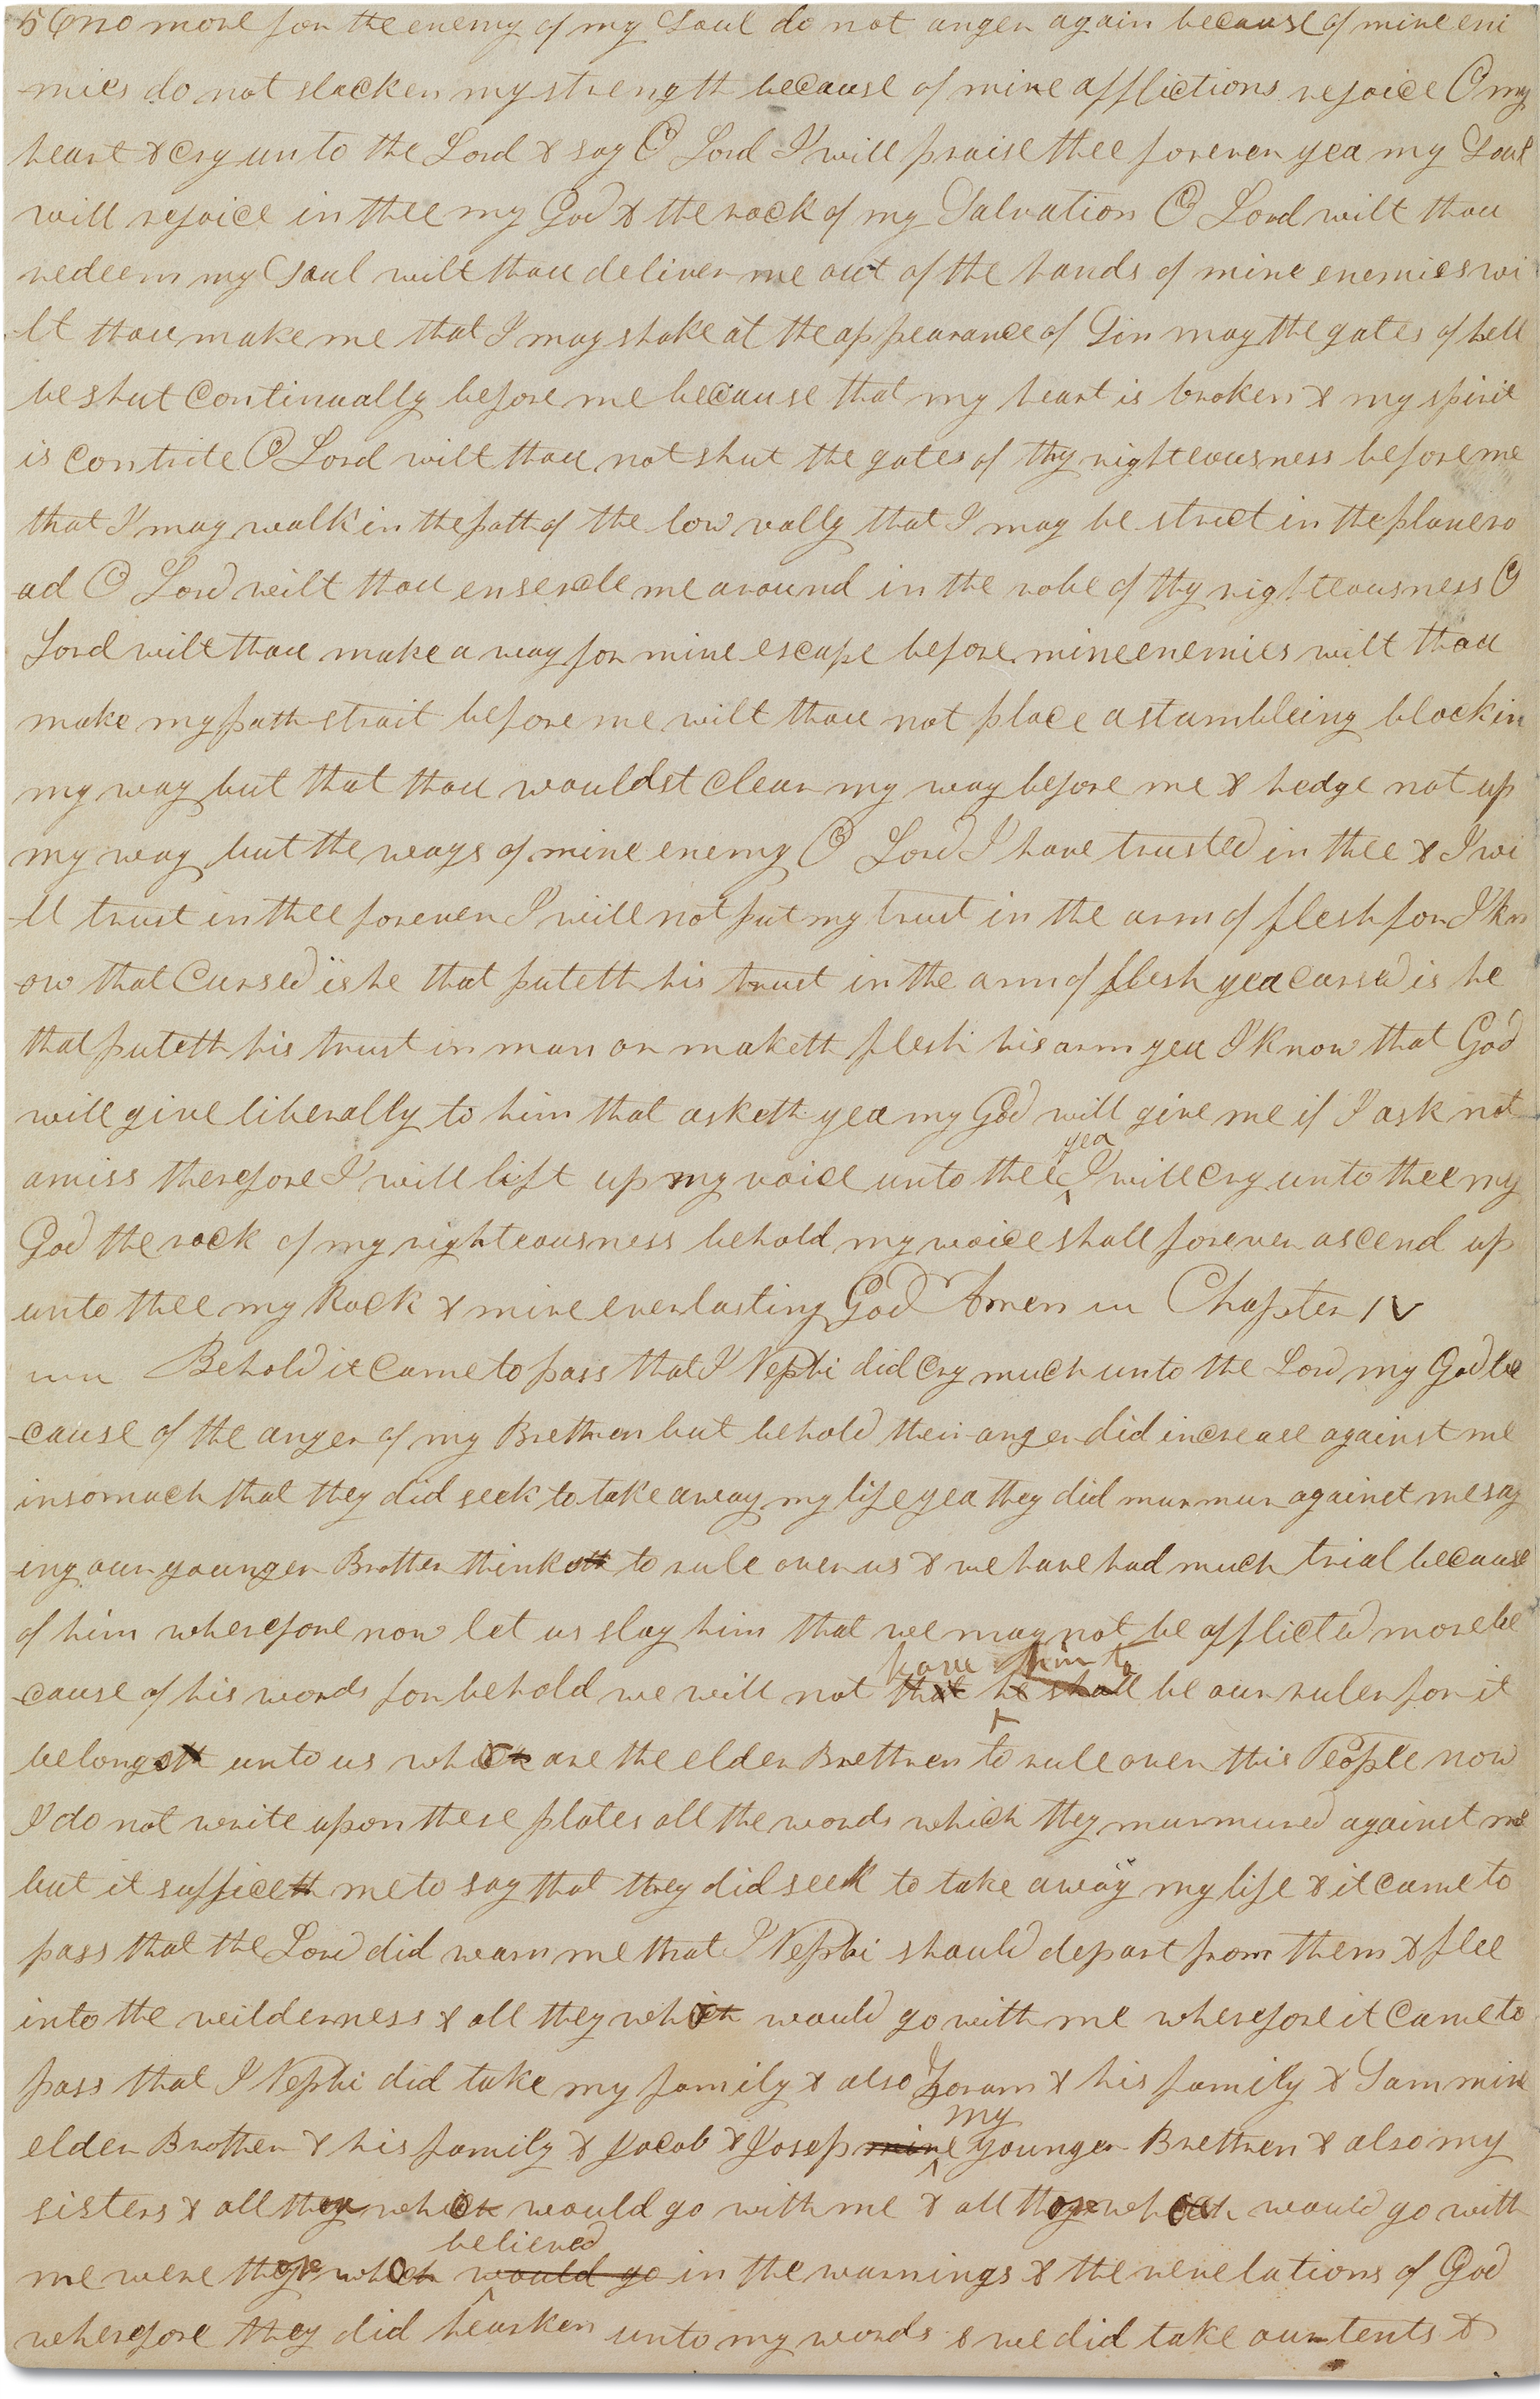 56 no more for the enemy of my Soul do not anger again because of mine eni
-mies do not slacken my strength because of mine afflictions rejoice O my
heart & cry unto the Lord & say O Lord I will praise thee forever yea my Soul
will rejoice in thee my God & the rock of my Salvation O Lord wilt thou
redeem my Soul wilt thou deliver me out of the hands of mine enemies wi
-lt thou make me that I may shake at the appearance of Sin may the gates of hell
be shut continually before me because that my heart is broken & my spirit
is contrite O Lord wilt thou not shut the gates of thy righteousness before me
that I may walk in the path of the low vally that I may be strict in the plane ro
-ad O Lord wilt thou ensercle me around in the robe of thy righteousness O
Lord wilt thou make a way for mine escape before mine enemies wilt thou
make my path strait before me wilt thou not place a stumbleing block in
my way but that thou wouldst clear my way before me & hedge not up
my way but the ways of mine enemy O Lord I have trusted in thee & I wi
-ll trust in thee forever I will not put my trust in the arm of flesh for I kn
-ow that cursed is he that puteth his trust in the arm of flesh yea cursed is he
that puteth his trust in man or maketh flesh his arm yea I know that God
will give liberally to him that asketh yea my God will give me if I ask not
amiss therefore I will lift up my voice unto thee yea I will cry unto thee my
God the rock of my righteousness behold my voice shall forever ascend up
unto thee my Rock & mine everlasting God Amen Chapter IV
Behold it came to pass that I Nephi did cry much unto the Lord my God be
-cause of the anger of my Brethren but behold their anger did increase against me
insomuch that they did seek to take away my life yea they did murmur against me say
-ing our younger Brother thinketh to rule over us & we have had much trial because
of him wherefore now let us slay him that we may not be afflicted more be
have him to
-cause of his words for behold we will not that he shall be our ruler for it
belongeth unto us which are the elder Brethren to rule over this People now
I do not write upon these plates all the words which they murmured against me
but it sufficeth me to say that they did seek to take away my life & it came to
pass that the Lord did warn me that I Nephi should depart from them & flee
into the wilderness & all they which would go with me wherefore it came to
pass that I Nephi did take my family & also Zoram & his family & Sam mine
elder Brother & his family & Jacob & Josep mine my younger Brethren & also my
sisters & all they which would go with me & all those which would go with
believed
me were those which would go in the warnings & the revelations of God
wherefore they did hearken unto my words & we did take our tents &